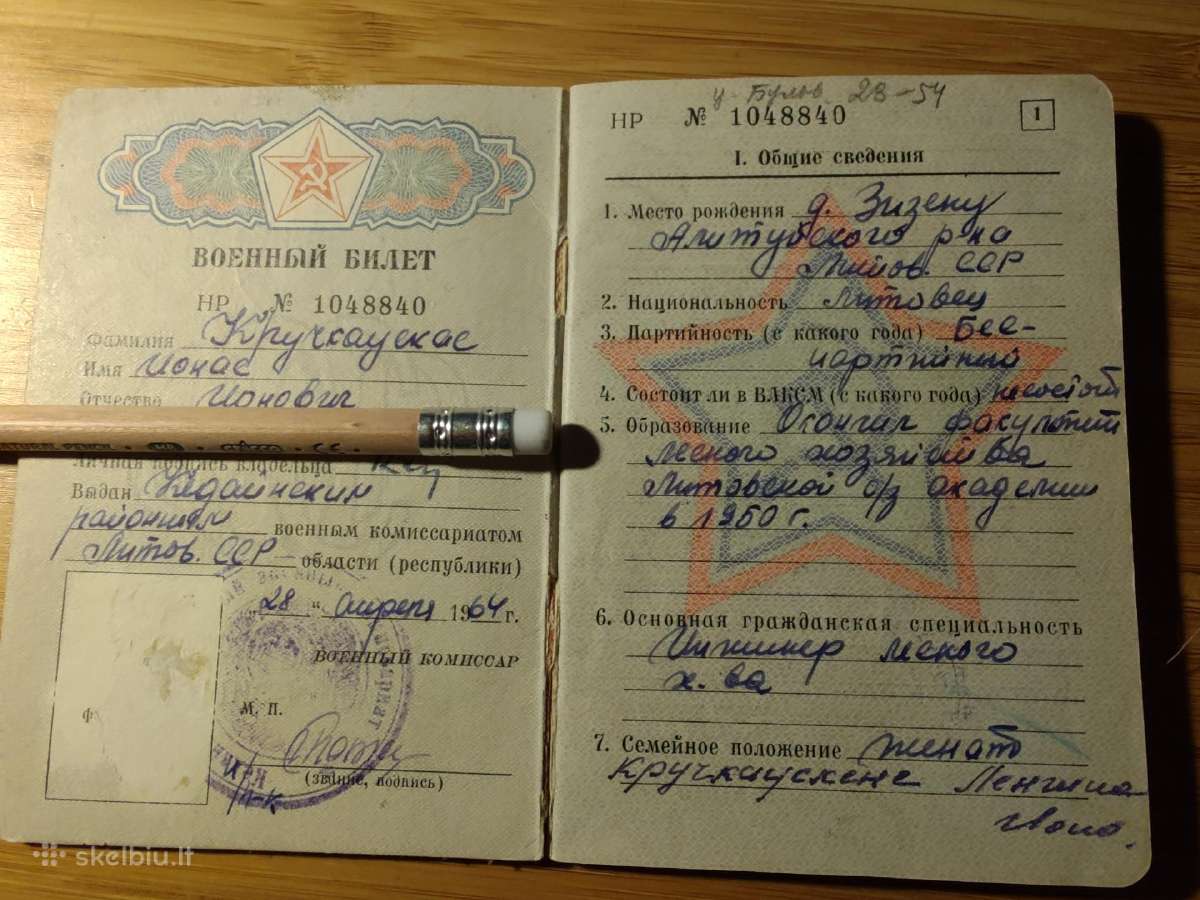 ВОЕННЫЙ БИЛЕТ
НР № 1048840
Фамилия Кручкаускас
Имя Ионас
Отчество Ионович
Личная подпись владельца
Выдан Кедайнским
районным военным комиссариатом
Литов. ССР области (республики)
"28" апреля 1964 г.
ВОЕННЫЙ КОМИССАР
М. П.
(звание, подпись)
Ф
skelbiu.lt
28-54
НР № 1048840
1
I. Общие сведения
1. Место рождения д. Зизену
Алитусского р-на
Литов. ССР
2. Национальность литовец
3. Партийность (с какого года) Бес-
партийный
4. Состоит ли в ВЛКСМ (с какого года) не состоит
5. Образование Окончил факультет
лесного хозяйства
Литовской с/х академии
в 1950 г.
6. Основная гражданская специальность
Инженер лесного
х-ва
7. Семейное положение женат
Кручкаускене